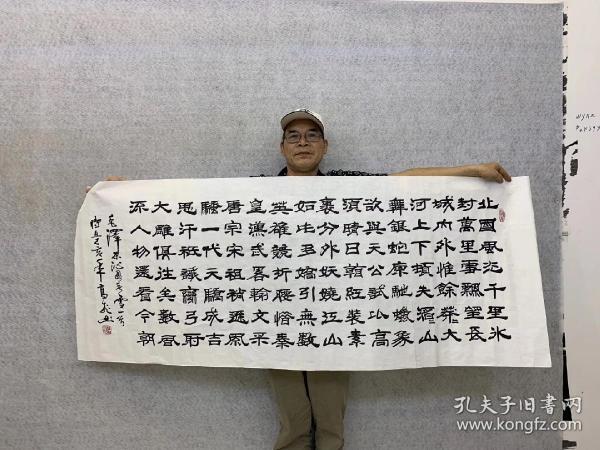 北國風光千里冰
封萬里雪飄望長
城內外惟餘莽大
河上下頓失滔山
舞銀蛇原馳蠟象
欲與天公試比高
須晴日看紅裝素
裹分外妖嬈江山
如此多嬌引無數
英雄競折腰惜秦
皇漢武畧輸文采
唐宗宋祖稍遜風
騷一代天驕成吉
思汗祇識彎弓射
大雕俱往矣數風
流人物還看今朝
毛澤東沁園春雪一首
己亥年高
孔夫子旧書网
www.kongfz.com